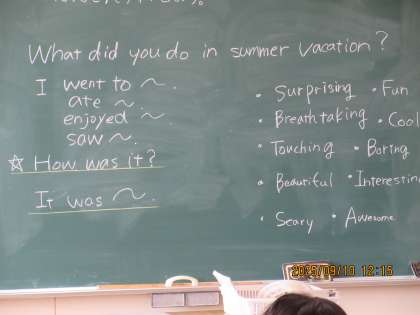 What did you do in summer vacation?
I went to ~.
ate ~.
enjoyed ~.
saw ~.
☆ How was it?
It was ~.
• Surprising • Fun
• Breathtaking • Cool
• Touching • Boring
• Beautiful • Interesting
• Scary • Awesome